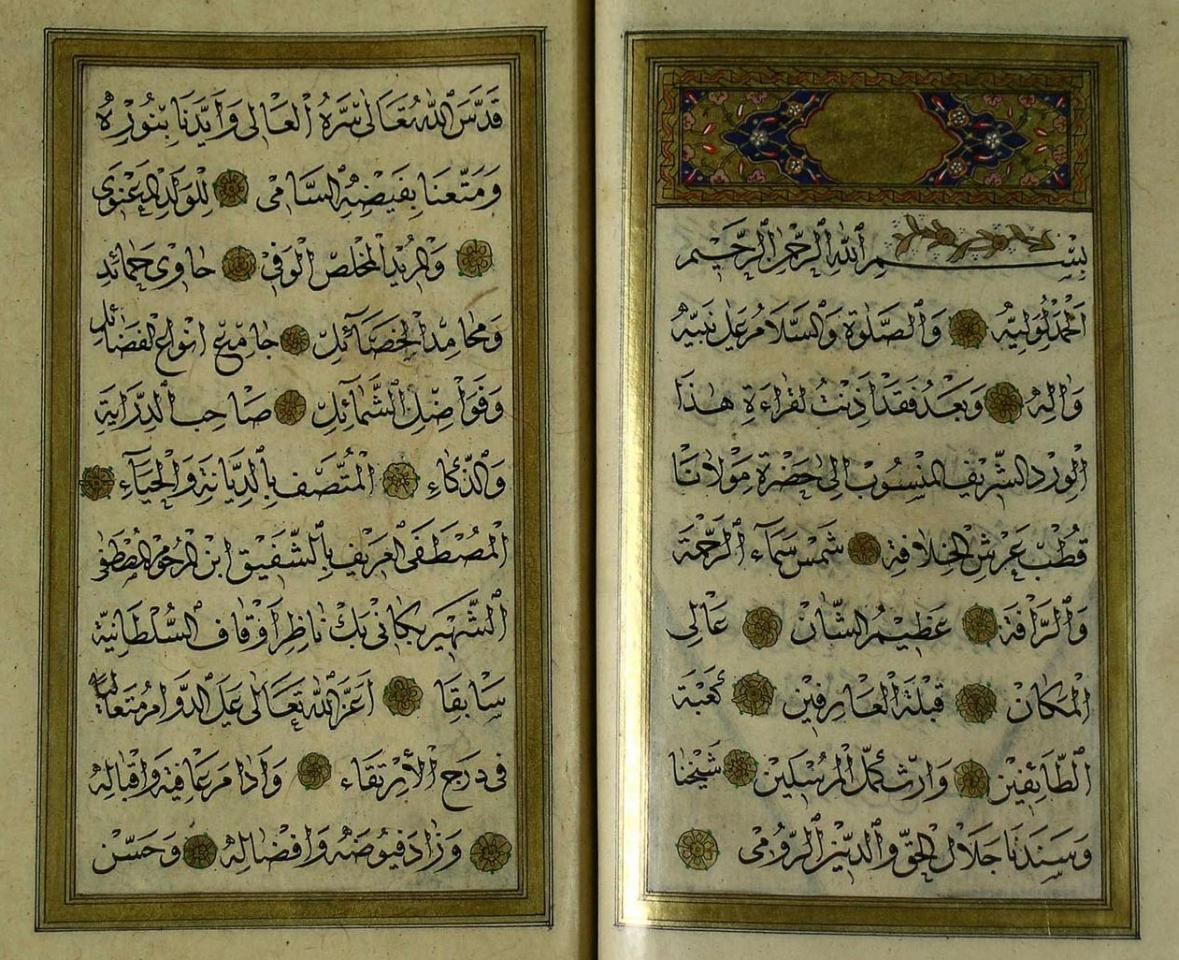 بسم الله الرحمن الرحيم
الحمد لوليه والصلوة والسلام على نبيه
واله وبعد فقد اذنت لقراءة هذا
الورد الشريف المنسوب الى حضرة مولانا
قطب عرش الخلافة شمس سماء الرحمة
والرافة عظيم الشان عالى
المكان قبلة العارفين كعبة
الطائفين وارث كمل المرسلين شيخنا
وسندنا جلال الحق والدين الرومى
قدس الله تعالى سره العالى وايدنا بنوره
ومتعنا بفيضه السامى للولد المعنوى
والمريد المخلص الوفى حاوى حمائد
ومحامد الخصائل جامع انواع الفضائل
وفواضل الشمائل صاحب الدراية
والذكاء المتصف بالديانة والحياء
المصطفى العريف بالشفيق ابن المرحوم المصطفى
الشهير بكانى بك ناظر اوقاف السلطانية
سابقا اعز الله تعالى على الدوام متعاليا
فى درج الارتقاء وادام عافية واقباله
وزاد فيوضه وافضاله وحسن